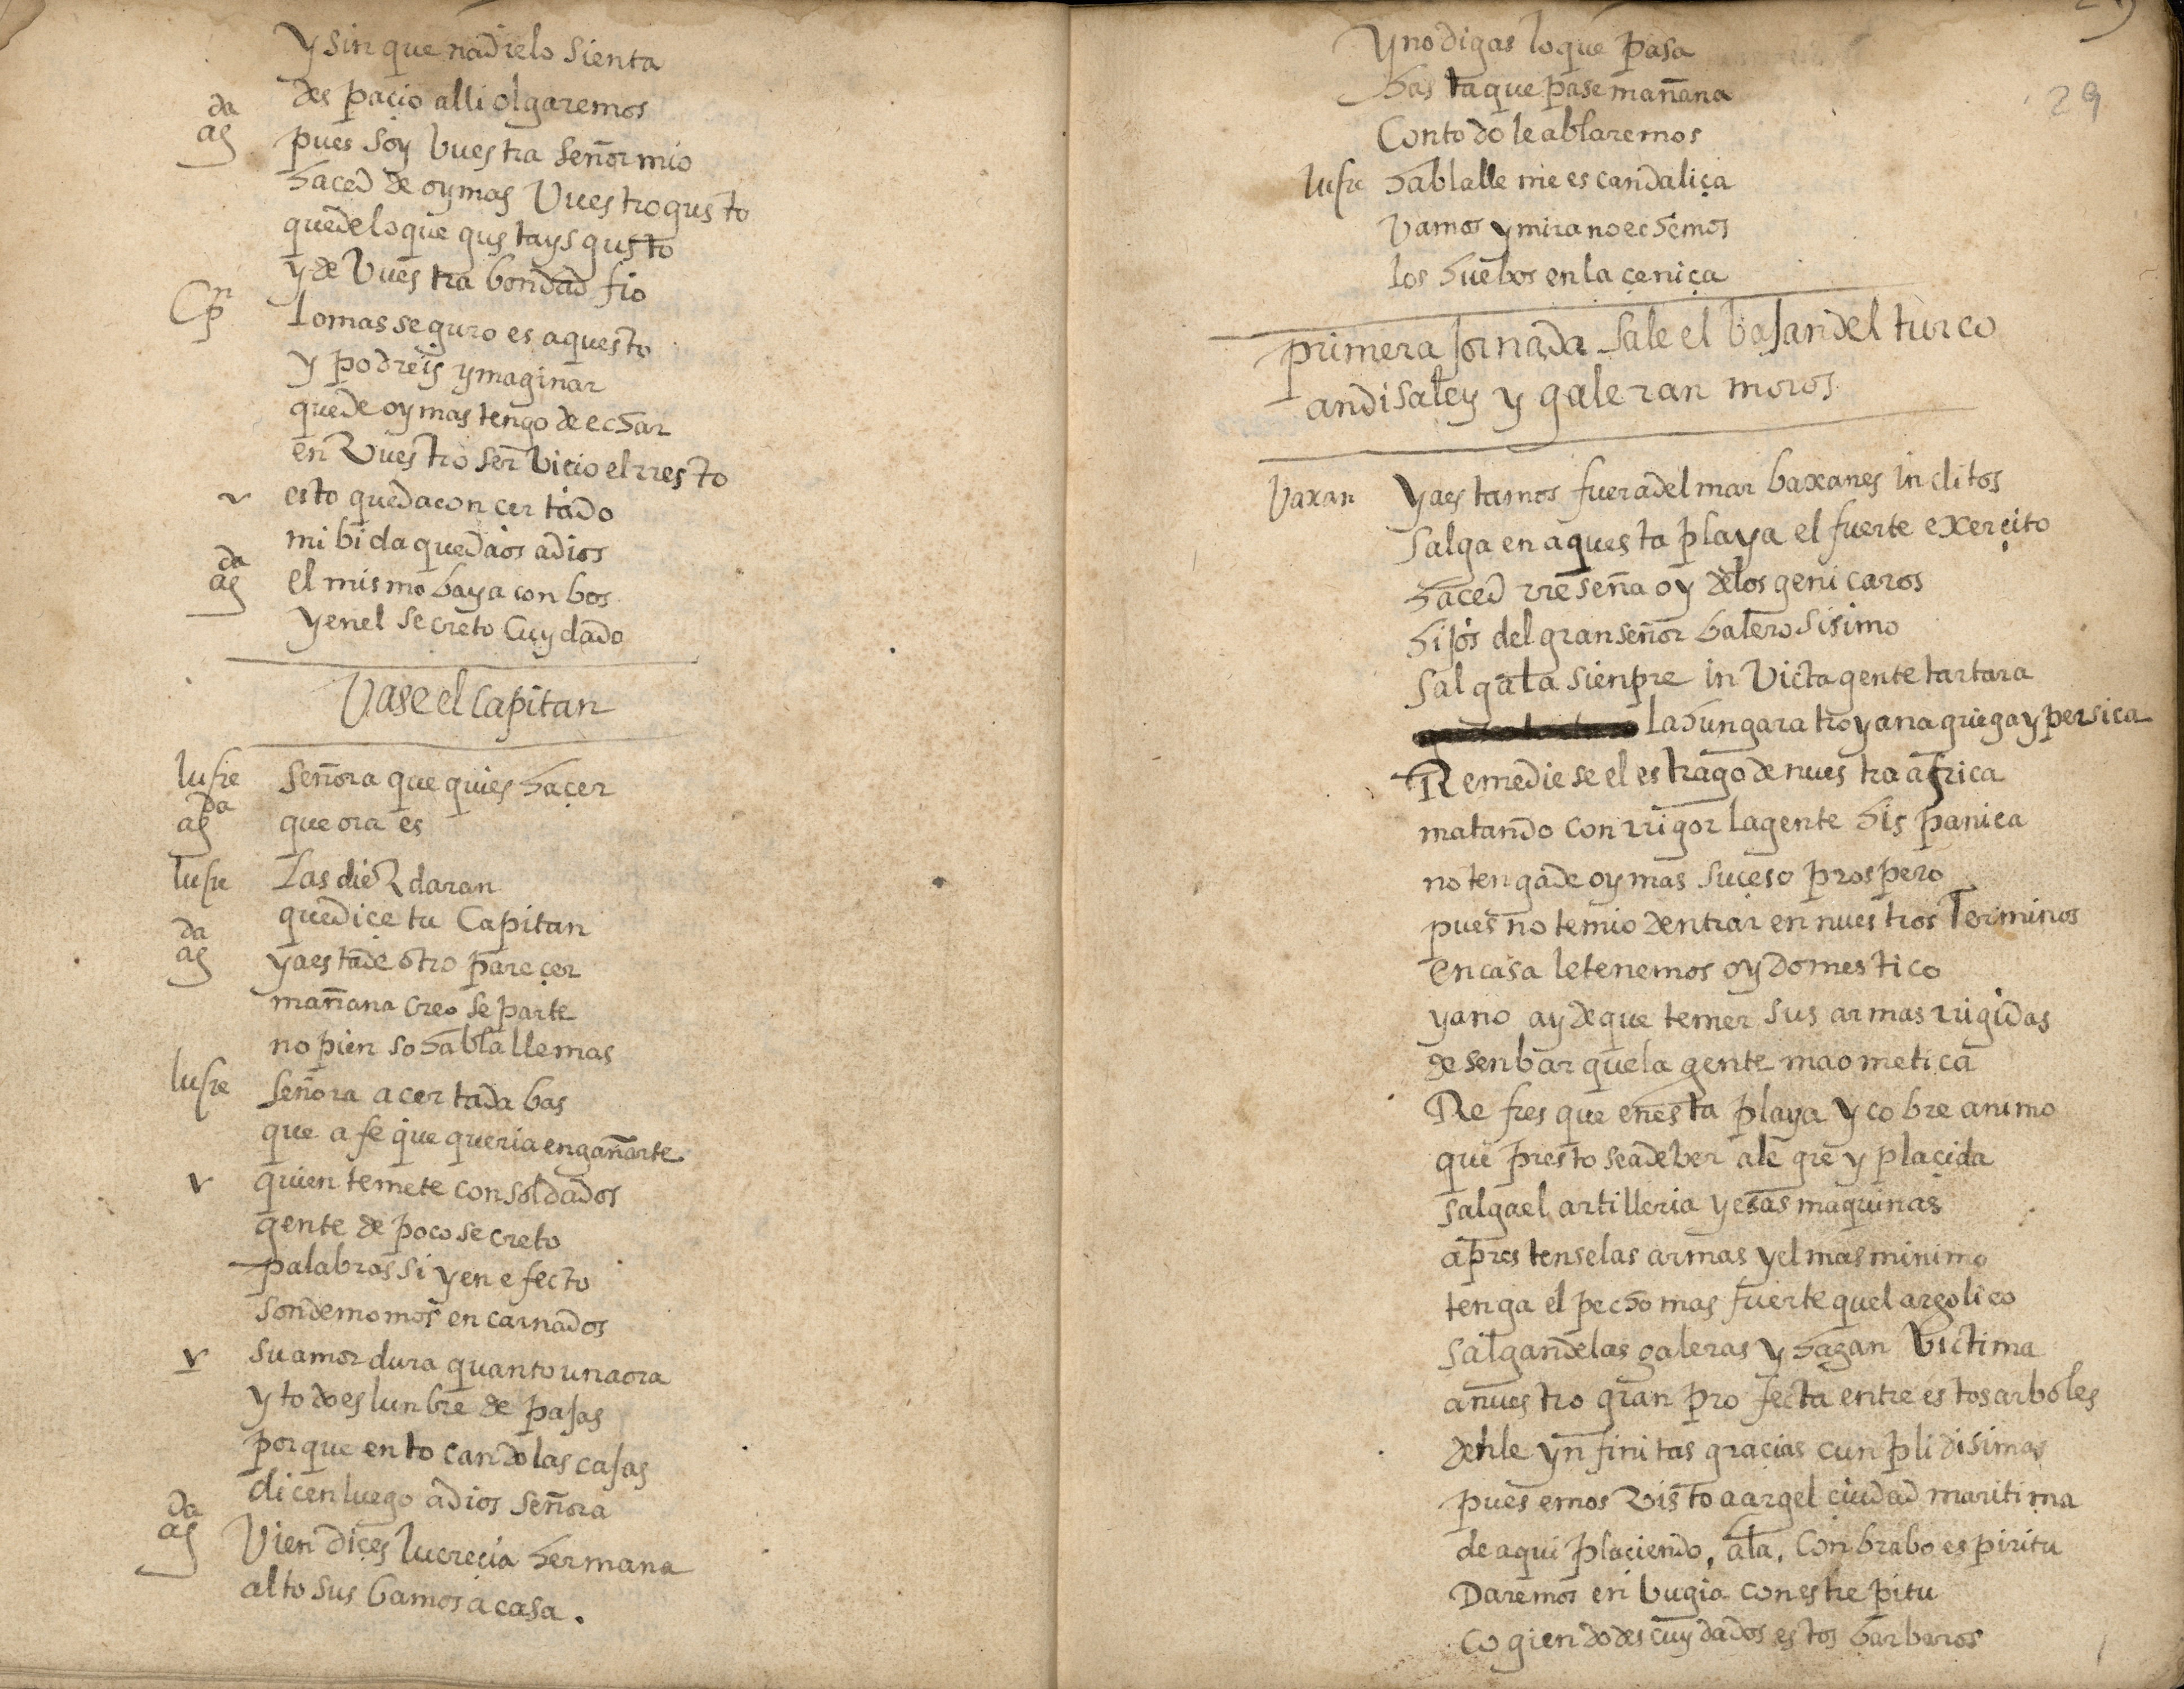 y sin que nadie lo sienta
des paçio alli olgaremos
da
ag pues soy buestra señor mio
haced de oy mas Vuestro gusto
quede lo que gustays gusto
y de Vuestra bondad fio
Cpn lo mas seguro es aquesto
y podreis ymaginar
que de oy mas tengo de echar
en Vuestro serbicio el rresto
v esto queda concertado
mi bida quedaos adios
da
ag el mismo baya con bos
y en el secreto Cuydado
Vase el Capitan
lucre señora que quies haçer
da
ag que ora es
lucre las dieZ daran
que diçe tu Capitan
da
ag ya esta de otro pareçer
mañana creo se parte
no pienso hablalle mas
lucre señora acertada bas
que a fe que queria engañarte
v quien te mete con soldados
gente de poco secreto
palabras si y en efecto
son demomos encarnados
v su amor dura quanto una ora
y todo es lunbre de pajas
porque en tocando las cajas
dicen luego adios señora
da
ag Vien diçes lucreçia hermana
alto sus bamos a casa.
29
y no digas lo que pasa
hasta que pase mañana
Con todo le ablaremos
lucre hablalle me escandaliça
Vamos y mira no echemos
los huebos en la çeniça
primera Jornada sale el bajan del turco
andisaley y galeran moros
Vaxan ya estamos fuera del mar baxanes inclitos
salga en aquesta playa el fuerte exerçito
haced rreseña oy de los geniçaros
hijos del gran señor balerosisimo
salga la sienpre inVicta gente tartara
la hungara troyana griega y persica
Remediese el estrago de nuestra africa
matando con rrigor la gente hispanica
no tenga de oy mas suçeso prospero
pues no temio dentrar en nuestros Terminos
en casa le tenemos oy domestico
ya no ay de que temer sus armas rrigidas
desenbarque la gente maometica
Refresque en esta playa y cobre animo
que presto se a de ber alegre y plaçida
salga el artilleria y esas maquinas
aprestense las armas y el mas minimo
tenga el pecho mas fuerte quel argolico
salgan de las galeras y hagan Victima
a nuestro gran profecta entre estos arboles
denle ynfinitas graçias cunplidisimas
pues emos Visto a argel çiudad maritima
de aqui plaçiendo, ala, Con brabo espiritu
Daremos en bugia con estrepitu
cogiendo descuydados estos barbaros